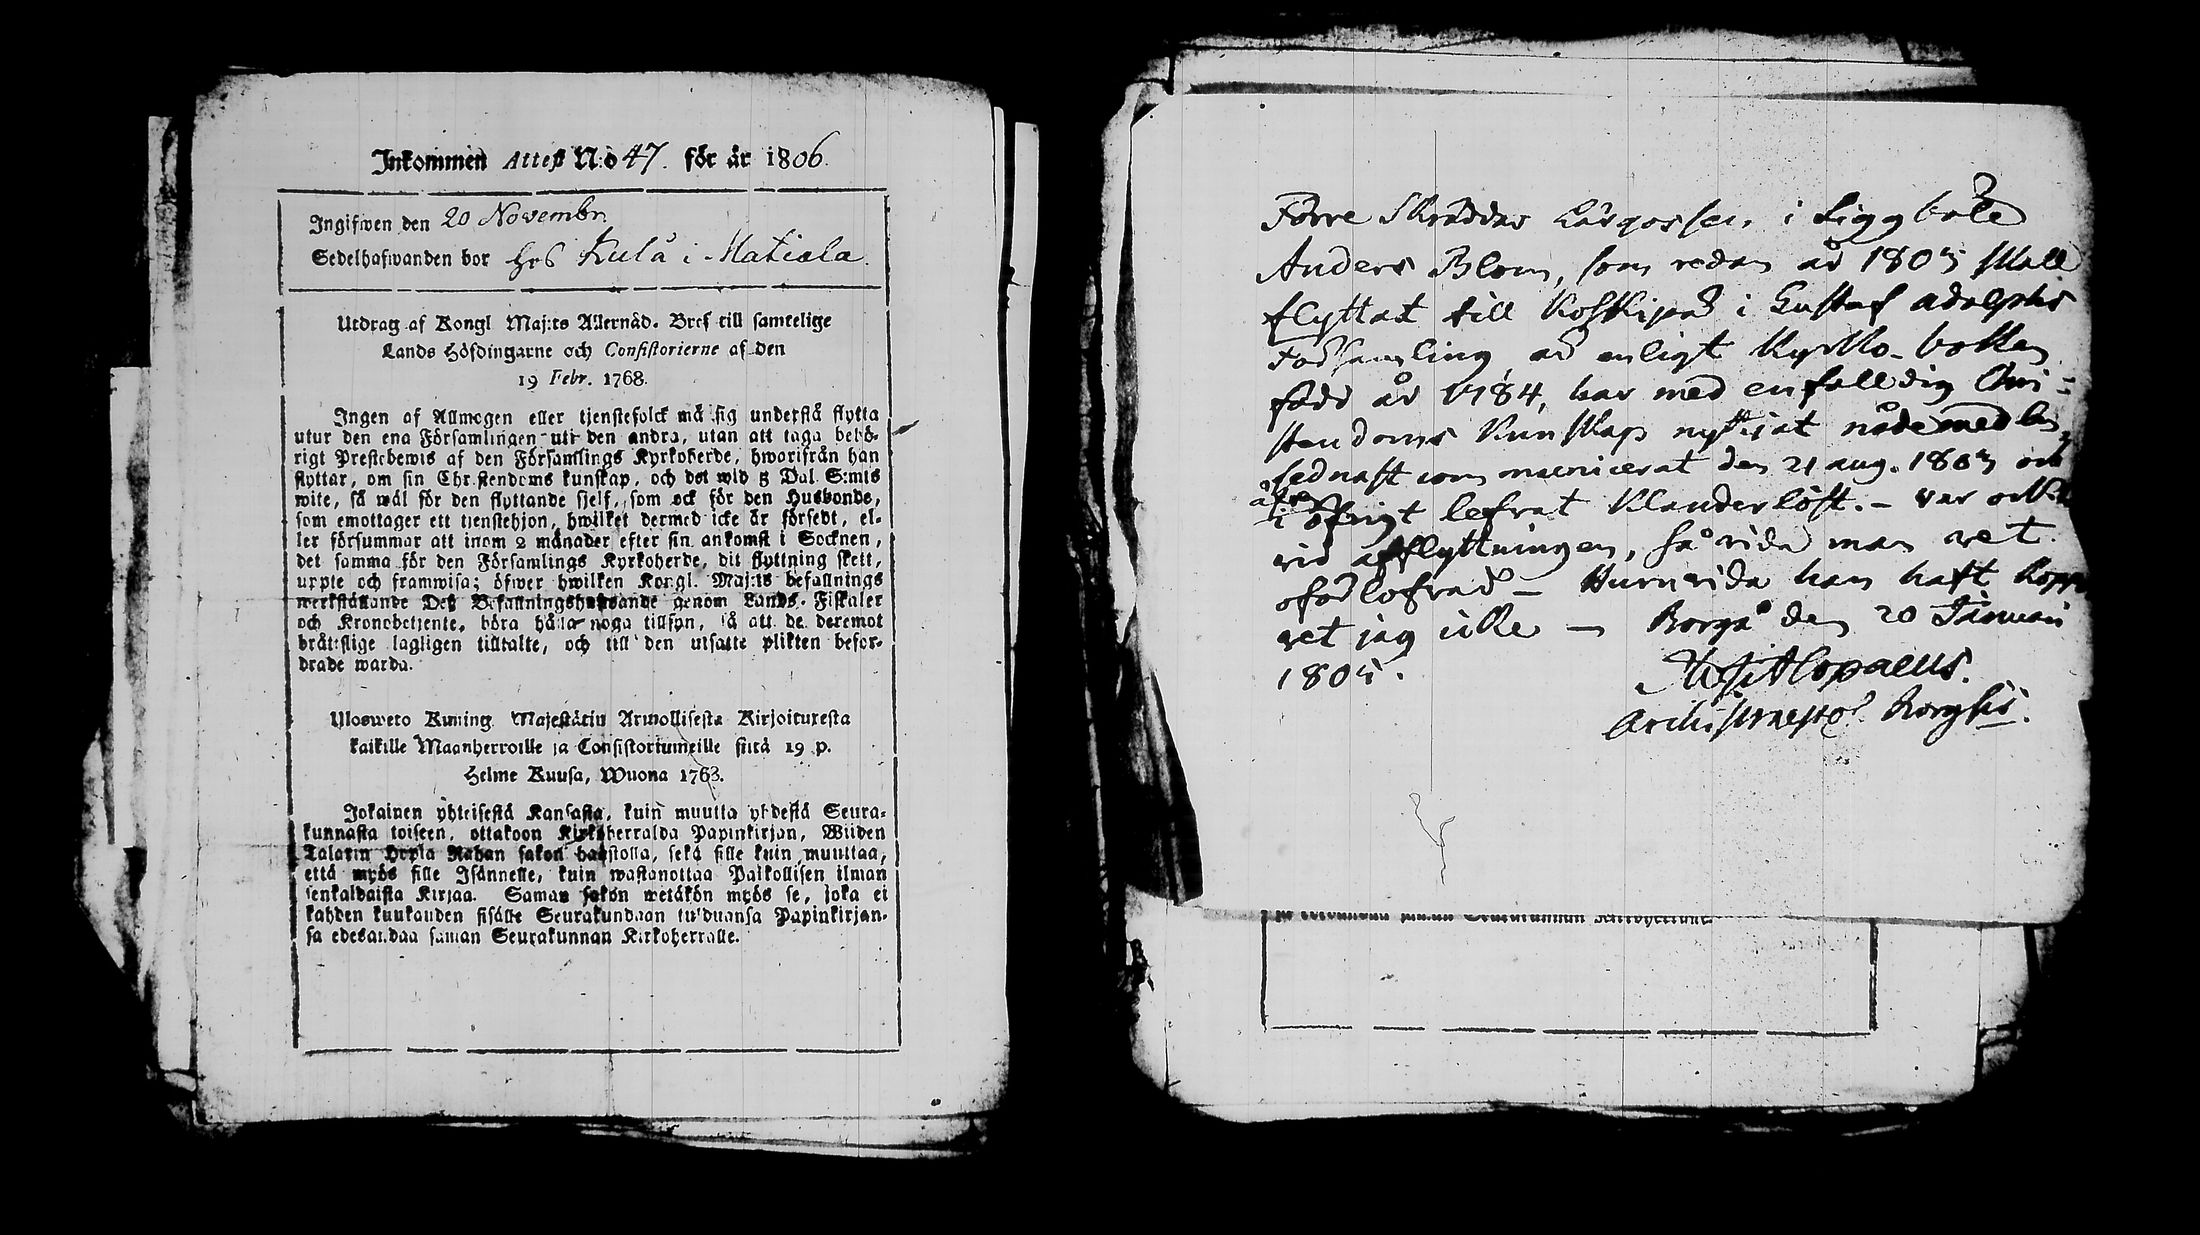 Inkommen Attest N:o 47. för år 1806.
Ingifwen den 20 Novembr.
Sedelhafwanden bor hos Kula i Matiala.
Utdrag af Kongl Maj:ts Allernåd. Bref till samtelige
Lands Höfdingarne och Consistorierne af den
19 Febr. 1768.
Ingen af Allmogen eller tjenstefolck må sig understå flytta
utur den ena Församlingen uti den andra, utan att taga behö-
rigt Prestebewis af den Församlings Kyrkoherde, hwarifrån han
flyttar, om sin Christendoms kunskap, och det wid 5 Dal. S:mts
wite, så wäl för den flyttande sjelf, som ock för den Husbonde,
som emottager ett tjenstehjon, hwilket dermed icke är försedt, el-
ler försummar att inom 2 månader efter sin ankomst i Socknen,
det samma för den Församlings Kyrkoherde, dit flyttning skett,
uppte och framwisa; öfwer hwilken Kongl. Maj:ts befallnings
werkställande Deß Befallningshafwande genom Lands-Fiskaler
och Kronobetjente, böra hålla noga tillsyn, så att de deremot
brättslige lagligen tilltalte, och till den utsatte plikten befor-
drade warda.
Ulosweto Kuning. Majestätin Armollisesta Kirjoituxesta
kaikille Maanherroille ja Consistoriumeille siitä 19 p.
Helme Kuusa, Wuona 1768.
Jokainen yhteisestä Kansasta, kuin muutta yhdestä Seura-
kunnasta toiseen, ottakoon Kirkoherralda Papinkirjan, Wiiden
Talarin Hopia Rahan sakon haastolla, sekä sille kuin muuttaa,
että myös sille Isännelle, kuin wastanottaa Palkollisen ilman
senkaldaista Kirjaa. Saman sakon wetäkön myös se, joka ei
kahden kuukauden sisälle Seurakundaan tulduansa Papinkirjan-
sa edesandaa saman Seurakunnan Kirkoherralle.
Förre Skräddar Lärgossen i Siggböle
Anders Blom, som redan år 1803 skall
flyttat till Koskipää i Gustaf Adolphs
Församling är enligt Kyrko-boken
född år 1784, har med enfalldig Chri-
stendoms Kunskap nyttjat nådemedlen,
sednast communicerat den 21 aug. 1803 och
i öfrigt lefvat Klanderlöst. - Var ock
vid afflyttningen, så vida man vet
oförlofvad - Huruvida han haft Koppor
vet jag icke - Borgå den 20 Januari
1805.
Alopaeus.
Archipraepos. Borgsis.